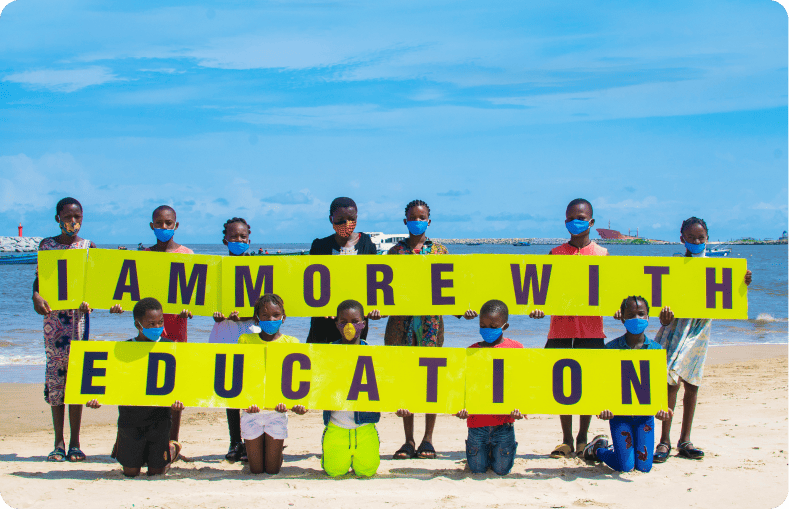 I AM MORE WITH
EDUCATION